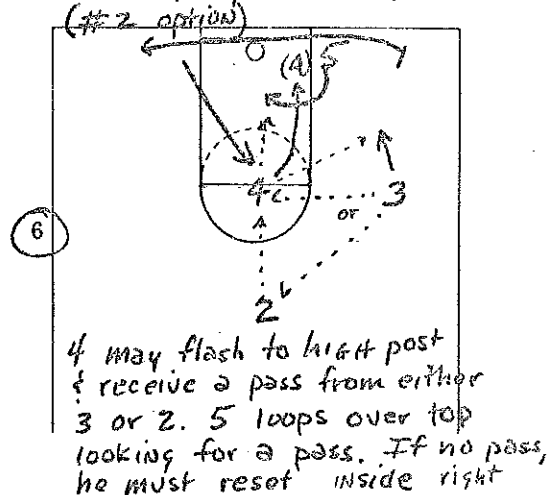 (#2 option)
(4)
4
3
or
6
2
4 may flash to HIGH post
& receive a pass from either
3 or 2. 5 loops over top
looking for a pass. If no pass,
he must reset inside right